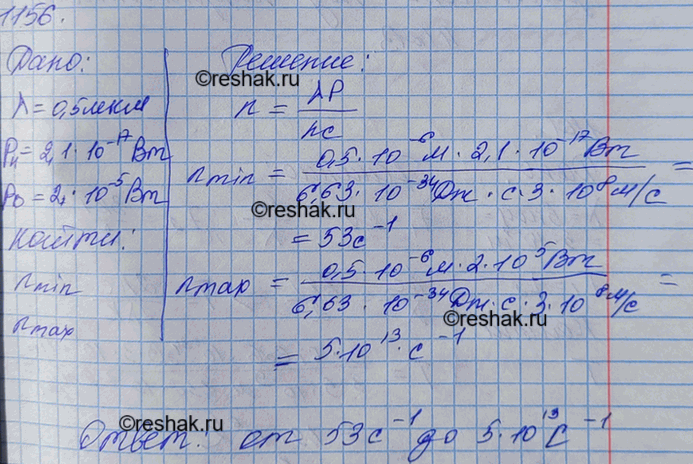 1156.
Дано:
λ = 0,5 мкм
Pч = 2,1 · 10⁻¹⁷ Вт
P₀ = 2 · 10⁻⁵ Вт
Найти:
n min
n max
Решение:
©reshak.ru
n = λP / hc
n min = 0,5 · 10⁻⁶ м · 2,1 · 10⁻¹⁷ Вт / 6,63 · 10⁻³⁴ Дж · с · 3 · 10⁸ м/с =
©reshak.ru
= 53 с⁻¹
n max = 0,5 · 10⁻⁶ м · 2 · 10⁵ Вт / 6,63 · 10⁻³⁴ Дж · с · 3 · 10⁸ м/с =
©reshak.ru
= 5 · 10¹³ · с⁻¹
©reshak.ru
Ответ: от 53 с⁻¹ до 5 · 10¹³ с⁻¹